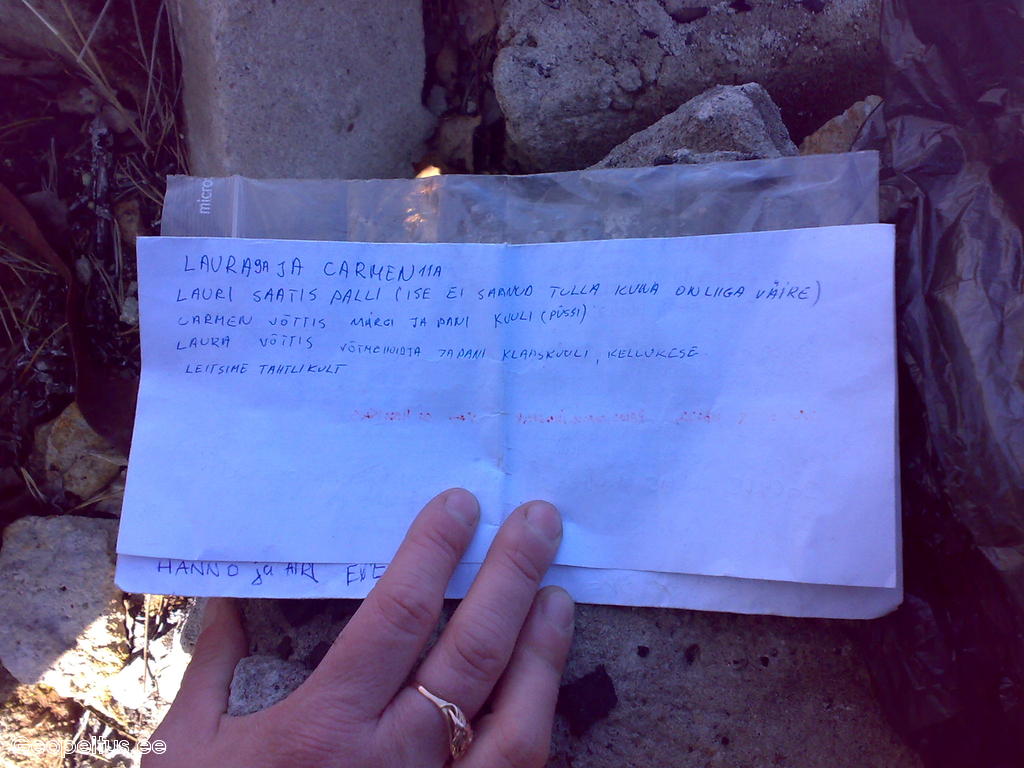 micro
LAURA9A JA CARMEN11A
LAURI SAATIS PALLI (ISE EI SAANUD TULLA KUNA ON LIIGA VÄIKE)
CARMEN VÕTTIS MÄRGI JA PANI KUULI (PÜSSI)
LAURA VÕTTIS VÕTMEHOIDJA JA PANI KLAASKUULI, KELLUKESE
LEITSIME TAHTLIKULT
HANNO ja AIRI
geopeitus.ee